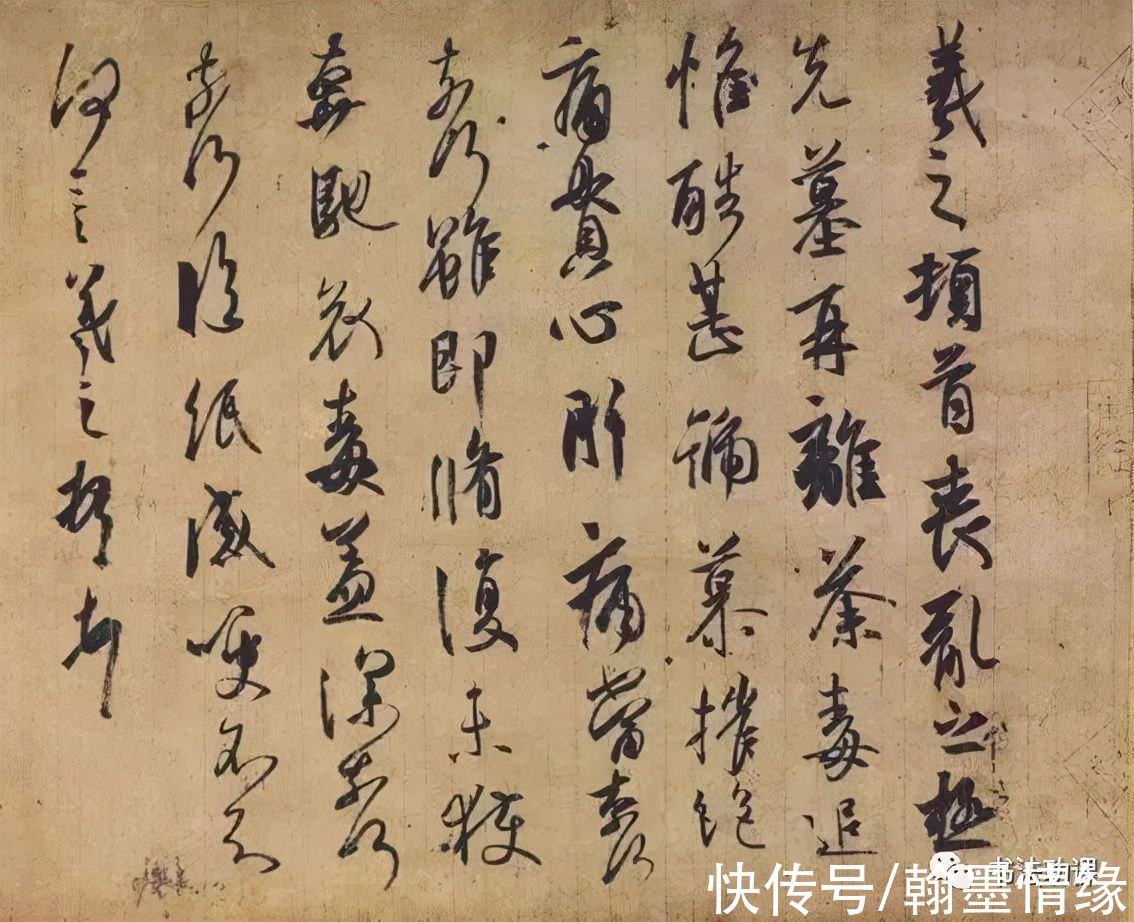 羲之頓首喪亂之極
先墓再離荼毒追
惟酷甚號慕摧絶
痛貫心肝痛當奈何
奈何雖即脩復未獲
奔馳哀毒益深奈何
奈何臨紙感哽不知
何言羲之頓首頓首
书法功课
快传号/翰墨情缘